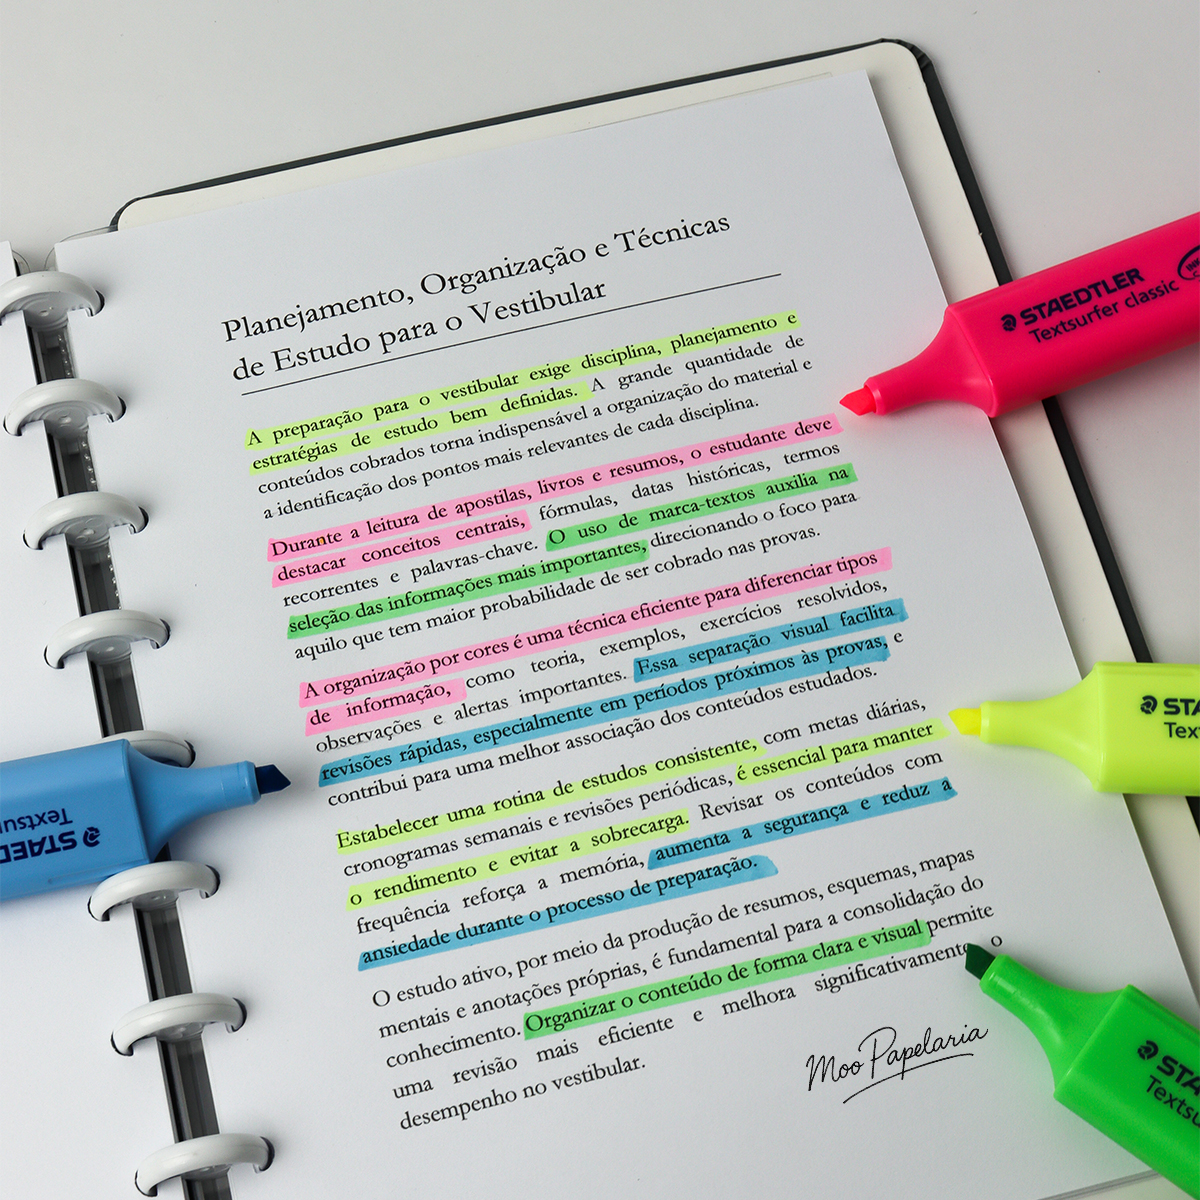 Planejamento, Organização e Técnicas
de Estudo para o Vestibular
A preparação para o vestibular exige disciplina, planejamento e
estratégias de estudo bem definidas. A grande quantidade de
conteúdos cobrados torna indispensável a organização do material e
a identificação dos pontos mais relevantes de cada disciplina.
Durante a leitura de apostilas, livros e resumos, o estudante deve
destacar conceitos centrais, fórmulas, datas históricas, termos
recorrentes e palavras-chave. O uso de marca-textos auxilia na
seleção das informações mais importantes, direcionando o foco para
aquilo que tem maior probabilidade de ser cobrado nas provas.
A organização por cores é uma técnica eficiente para diferenciar tipos
de informação, como teoria, exemplos, exercícios resolvidos,
observações e alertas importantes. Essa separação visual facilita
revisões rápidas, especialmente em períodos próximos às provas, e
contribui para uma melhor associação dos conteúdos estudados.
Estabelecer uma rotina de estudos consistente, com metas diárias,
cronogramas semanais e revisões periódicas, é essencial para manter
o rendimento e evitar a sobrecarga. Revisar os conteúdos com
frequência reforça a memória, aumenta a segurança e reduz a
ansiedade durante o processo de preparação.
O estudo ativo, por meio da produção de resumos, esquemas, mapas
mentais e anotações próprias, é fundamental para a consolidação do
conhecimento. Organizar o conteúdo de forma clara e visual permite
uma revisão mais eficiente e melhora significativamente o
desempenho no vestibular.
STAEDTLER
Textsurfer classic
STA
Tex
STAED
Textsur
STA
Textsu
Moo Papelaria